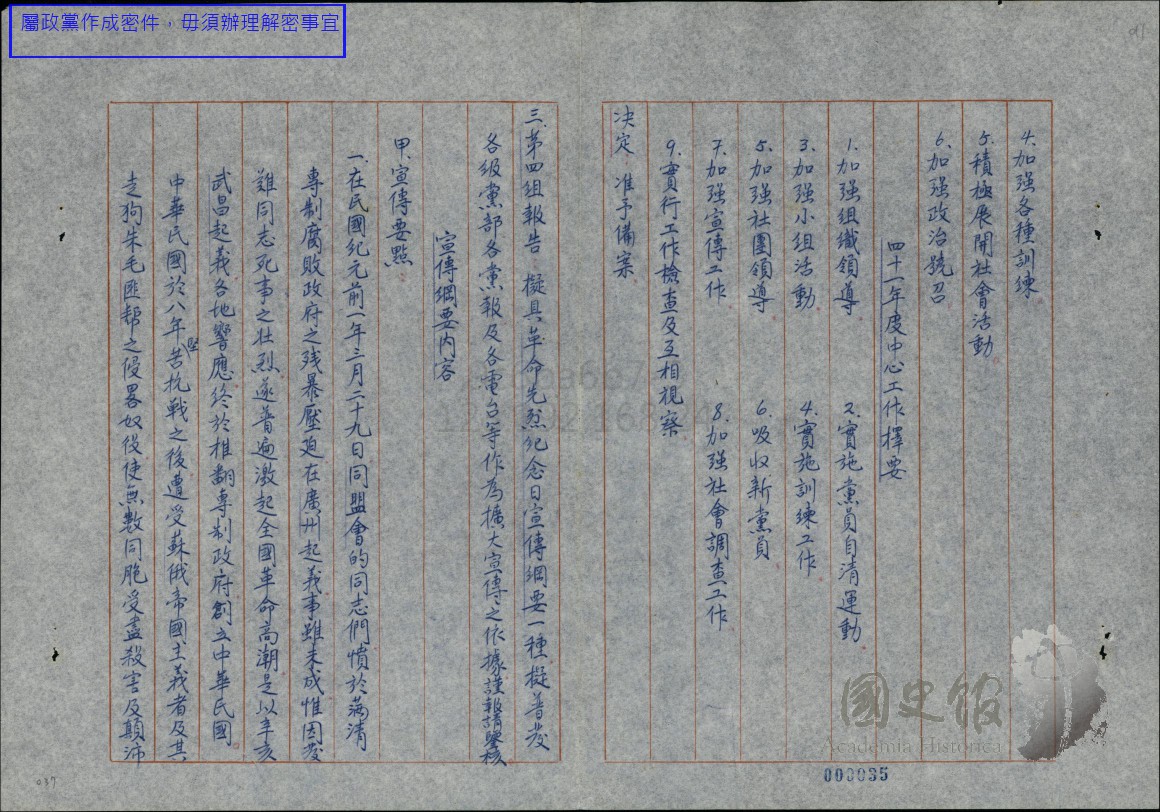 屬政黨作成密件，毋須辦理解密事宜
91
4.加强各種訓練
5.積極展開社會活動
6.加强政治號召
四十一年度中心工作擇要
1.加强組織領導 2.實施黨員自清運動
3.加强小組活動 4.實施訓練工作
5.加强社團領導 6.吸收新黨員
7.加强宣傳工作 8.加强社會調查工作
9.實行工作檢查及互相視察
决定 准予備案
三.第四組報告 擬具革命先烈紀念日宣傳綱要一種擬普發
各級黨部各黨報及各電台等作為擴大宣傳之依據謹報請鑒核
宣傳綱要內容
甲.宣傳要點
一.在民國紀元前一年三月二十九日同盟會的同志們憤於滿清
專制腐敗政府之残暴壓迫在廣州起義事雖未成惟因發
難同志死事之壮烈遂普遍激起全國革命高潮是以辛亥
武昌起義各地響應終於推翻專制政府創立中華民國
中華民國於八年堅苦抗戰之後遭受蘇俄帝國主義者及其
走狗朱毛匪幫之侵畧奴役使無數同胞受盡殺害及顛沛
國史館
Academia Historica
000035
037